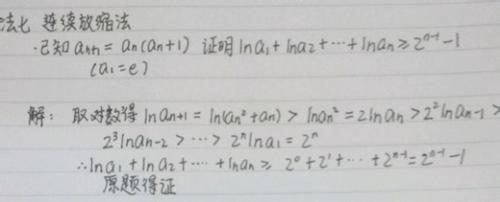 法七 连续放缩法
·已知 aₙ₊₁ = aₙ(aₙ+1) 证明 lna₁ + lna₂ + ··· + lnaₙ ≥ 2ⁿ⁻¹ - 1
(a₁ = e)
解: 取对数得 lnaₙ₊₁ = ln(aₙ² + aₙ) > lnaₙ² = 2lnaₙ > 2²lnaₙ₋₁ >
2³lnaₙ₋₂ > ··· > 2ⁿlna₁ = 2ⁿ
∴ lna₁ + lna₂ + ···· + lnaₙ ≥ 2⁰ + 2¹ + ··· + 2ⁿ⁻¹ = 2ⁿ⁻¹ - 1
原题得证